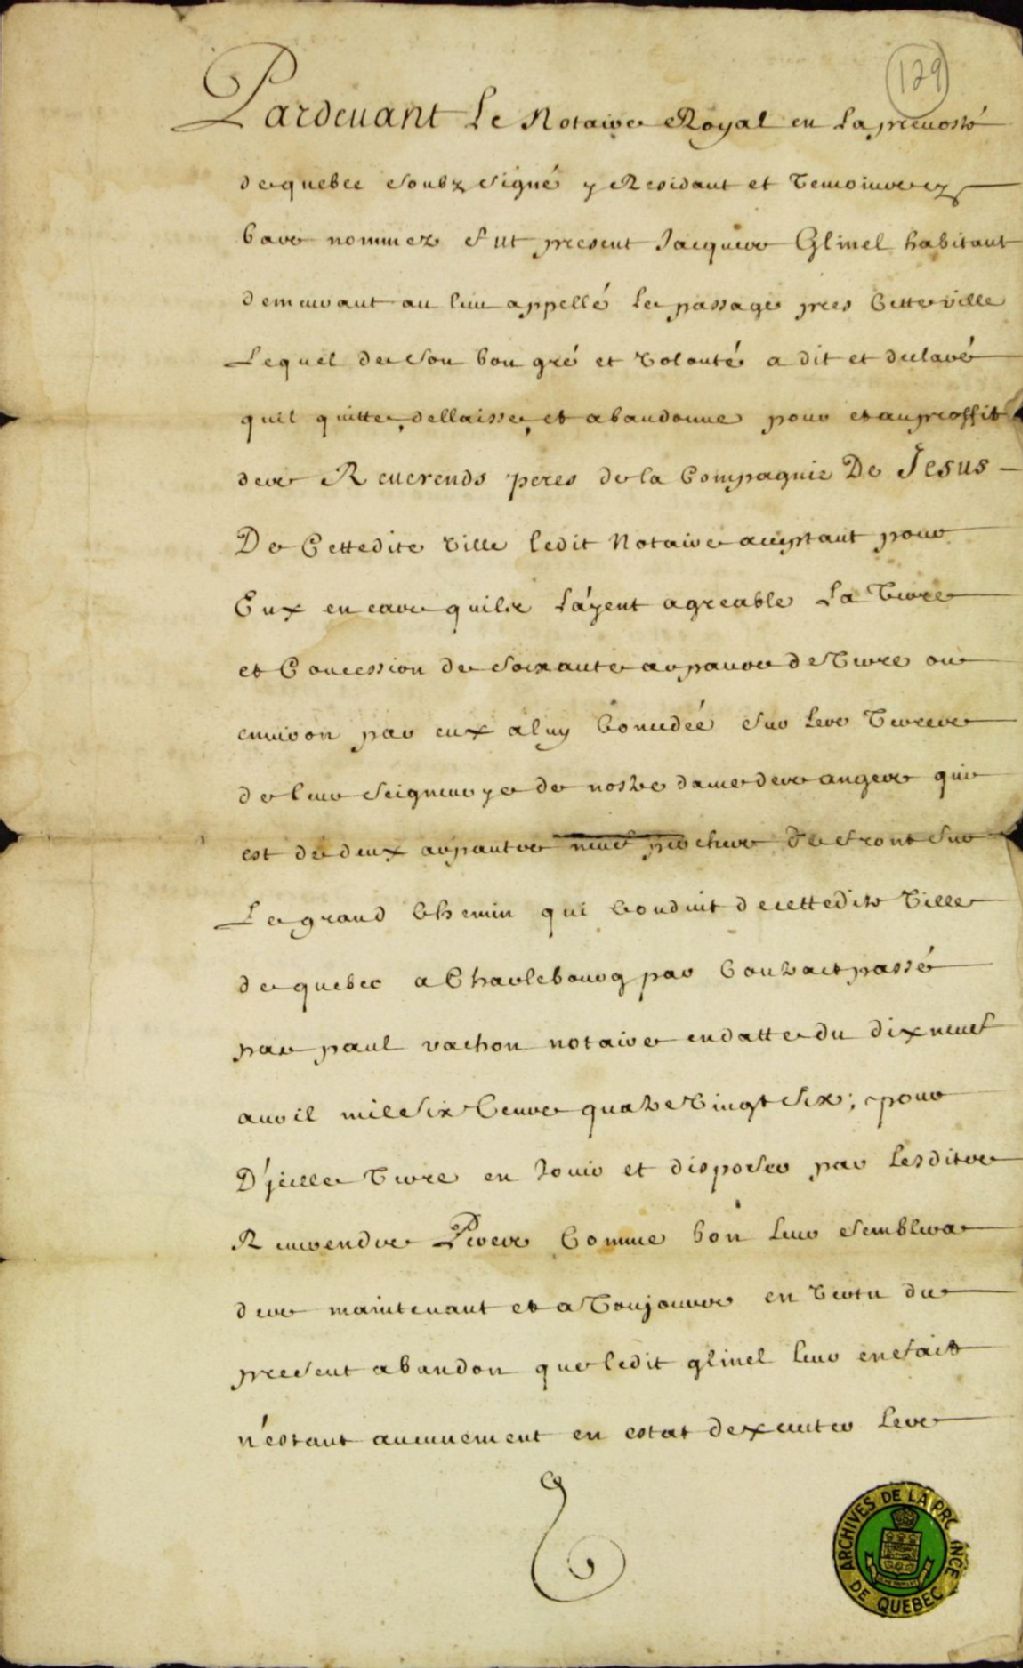 129
Pardevant Le Notaire Royal en La prevosté
de quebec soubz signé y Residant et temoins cy
bas nommez fut present Jacques Glinel habitant
demeurant au lieu appellé le passage pres cette ville
Lequel de son bon gré et volonté a dit et declaré
quil quitte, dellaisse, et abandonne pour et au proffit
des Reverends peres de la Compagnie De Jesus
De Cettedite ville ledit Notaire acceptant pour
Eux en cas quils l'ayent agreable La terre
et Concession de soixante arpans de terre ou
environ par eux a luy concedée sur les terres
de leur seigneurye de nostre dame des anges qui
est de deux arpants neuf perches de front sur
Le grand chemin qui conduit de cettedite ville
de quebec a Charlebourg par contract passé
par paul vachon notaire en datte du dix neuf
avril mil six cens quatre vingt six; pour
D'jcelle terre en Jouir et disposer par Lesdits
Reverends Peres Comme bon leur semblera
des maintenant et a toujours en vertu du
present abandon que ledit glinel leur en fait
n'estant aucunement en estat dexecuter les
ARCHIVES DE LA PROVINCE DE QUEBEC